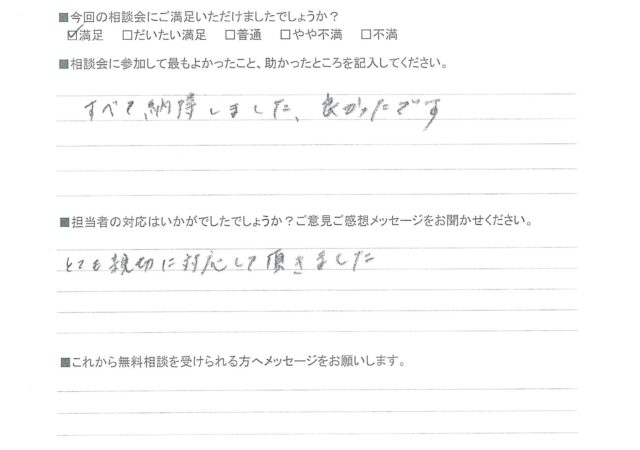 ■今回の相談会にご満足いただけましたでしょうか？
☑満足　□だいたい満足　□普通　□やや不満　□不満
■相談会に参加して最もよかったこと、助かったところを記入してください。
すべて納得しました、良かったです
■担当者の対応はいかがでしたでしょうか？ご意見ご感想メッセージをお聞かせください。
とても親切に対応して頂きました
■これから無料相談を受けられる方へメッセージをお願いします。